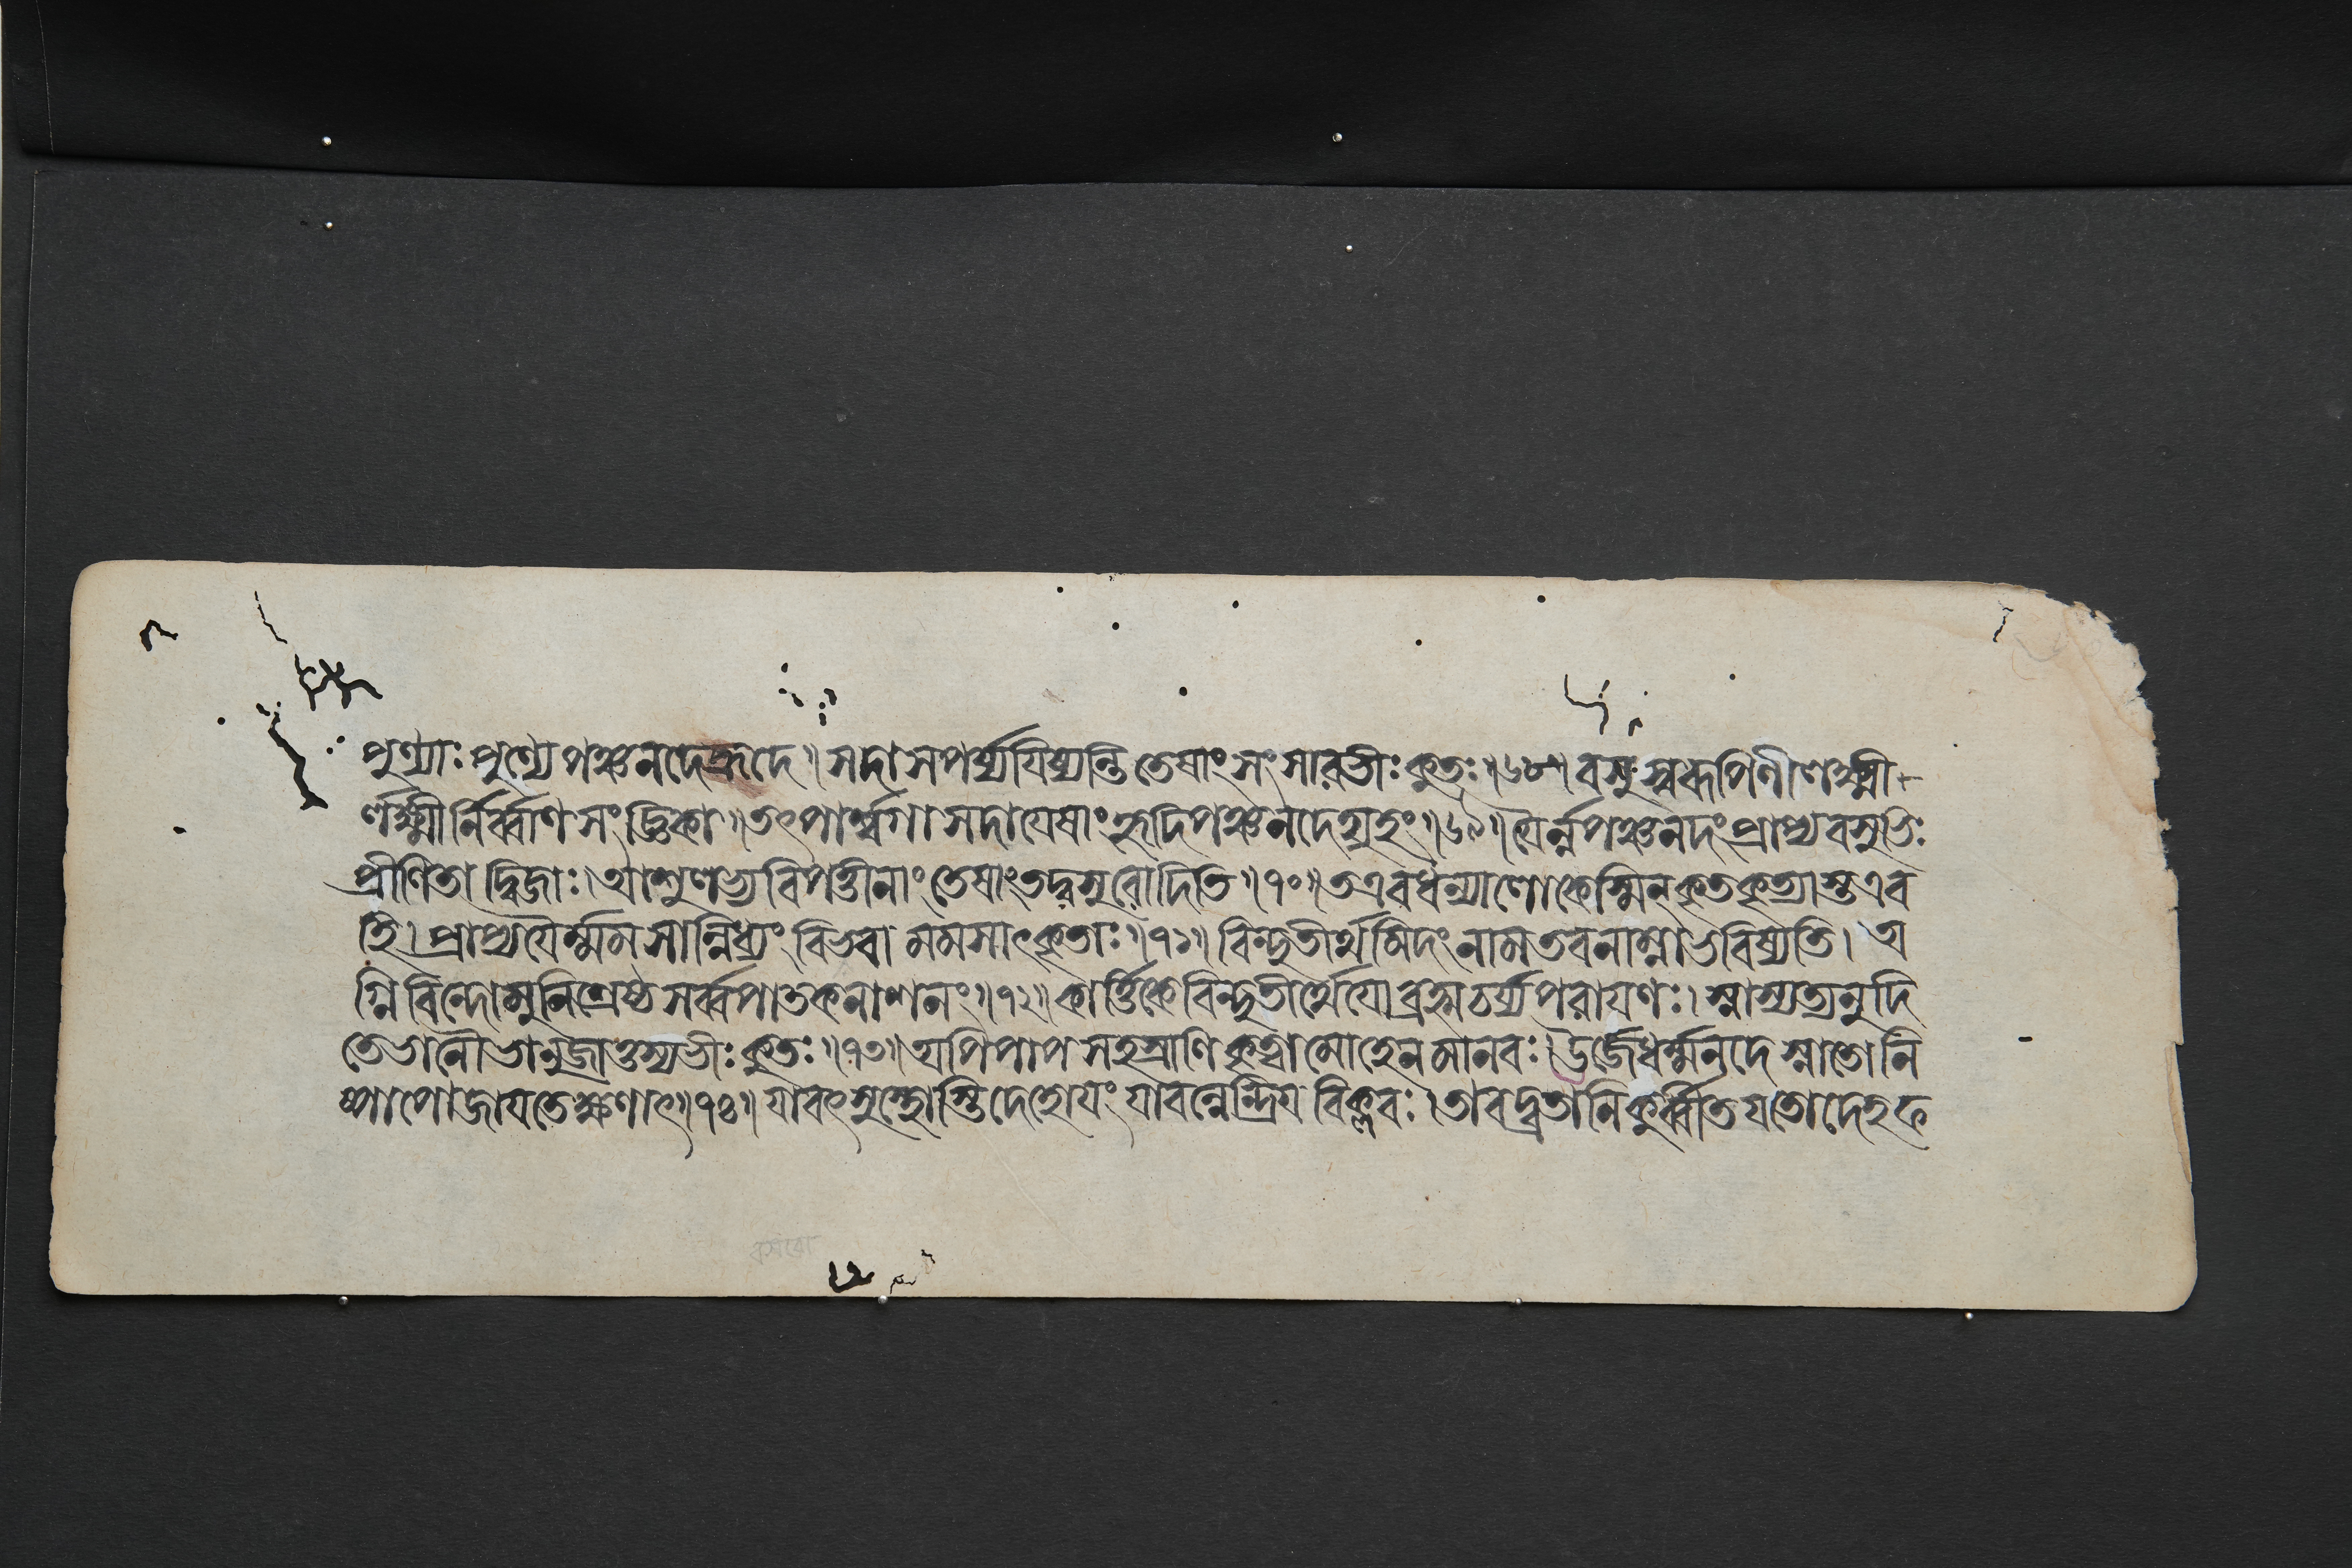 পুণ্যাঃ পুণ্যে পঞ্চনদেহ্রদে॥ সদা সপর্য্যযিষ্যন্তি তেষাং সংসারভীঃ কুতঃ॥৬৮॥ বসুস্বরূপিণী লক্ষ্মী-
র্লক্ষ্মীর্নির্ব্বাণ সংজ্ঞিকা॥ তৎপার্শ্বগা সদা যেষাং হৃদি পঞ্চনদেহ্যহং॥৬৯॥ যৈর্ন্ন পঞ্চনদং প্রাপ্য বসুভিঃ
প্রীণিতা দ্বিজাঃ। আশুলভ্য বিপত্তীনাং তেষাং তদ্বসুরোদিতি॥৭০॥ ত এব ধন্যা লোকেস্মিন্ কৃতকৃত্যাস্ত এব
হি। প্রাপ্য যৈর্ম্মম সান্নিধ্যং বিভবা মমসাৎকৃতাঃ॥৭১॥ বিন্দুতীর্থমিদং নাম তব নাম্না ভবিষ্যতি। অ
গ্নিবিন্দো মুনিশ্রেষ্ঠ সর্ব্বপাতকনাশনং॥৭২॥ কার্ত্তিকে বিন্দুতীর্থে যো ব্রহ্মচর্য্যপরাযণঃ। স্নাস্যত্যনুদি
তে ভানৌ ভানুজাত্তস্য ভীঃ কুতঃ॥৭৩॥ অপি পাপসহস্রাণি কৃত্বা মোহেন মানবঃ। ঊর্জে ধর্ম্মনদে স্নাতো নি
ষ্পাপো জাযতে ক্ষণাৎ॥৭৪॥ যাবৎ সুস্থোস্তি দেহোযং যাবন্নেন্দ্রিয বিক্লবঃ। তাবদ্ব্রতানি কুর্ব্বীত যতো দেহফ